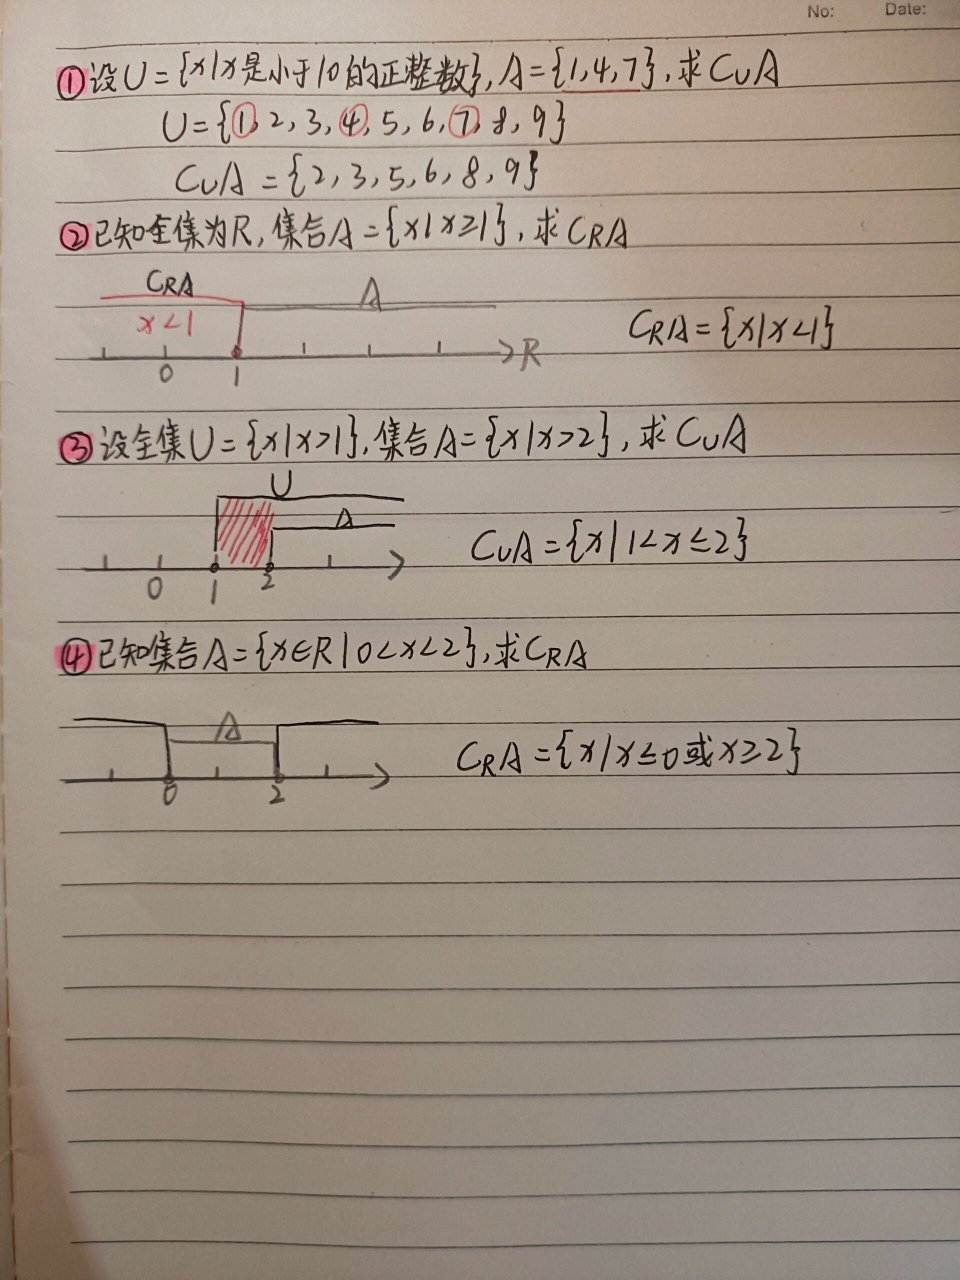 No: Date:
①设U={x|x是小于10的正整数},A={1,4,7},求CuA
U={1,2,3,4,5,6,7,8,9}
CuA={2,3,5,6,8,9}
②已知全集为R,集合A={x|x≥1},求CRA
CRA A
x<1 CRA={x|x<1}
0 1 R
③设全集U={x|x>1},集合A={x|x>2},求CuA
U
A CuA={x|1<x≤2}
0 1 2
④已知集合A={x∈R|0<x<2},求CRA
A CRA={x|x≤0或x≥2}
0 2